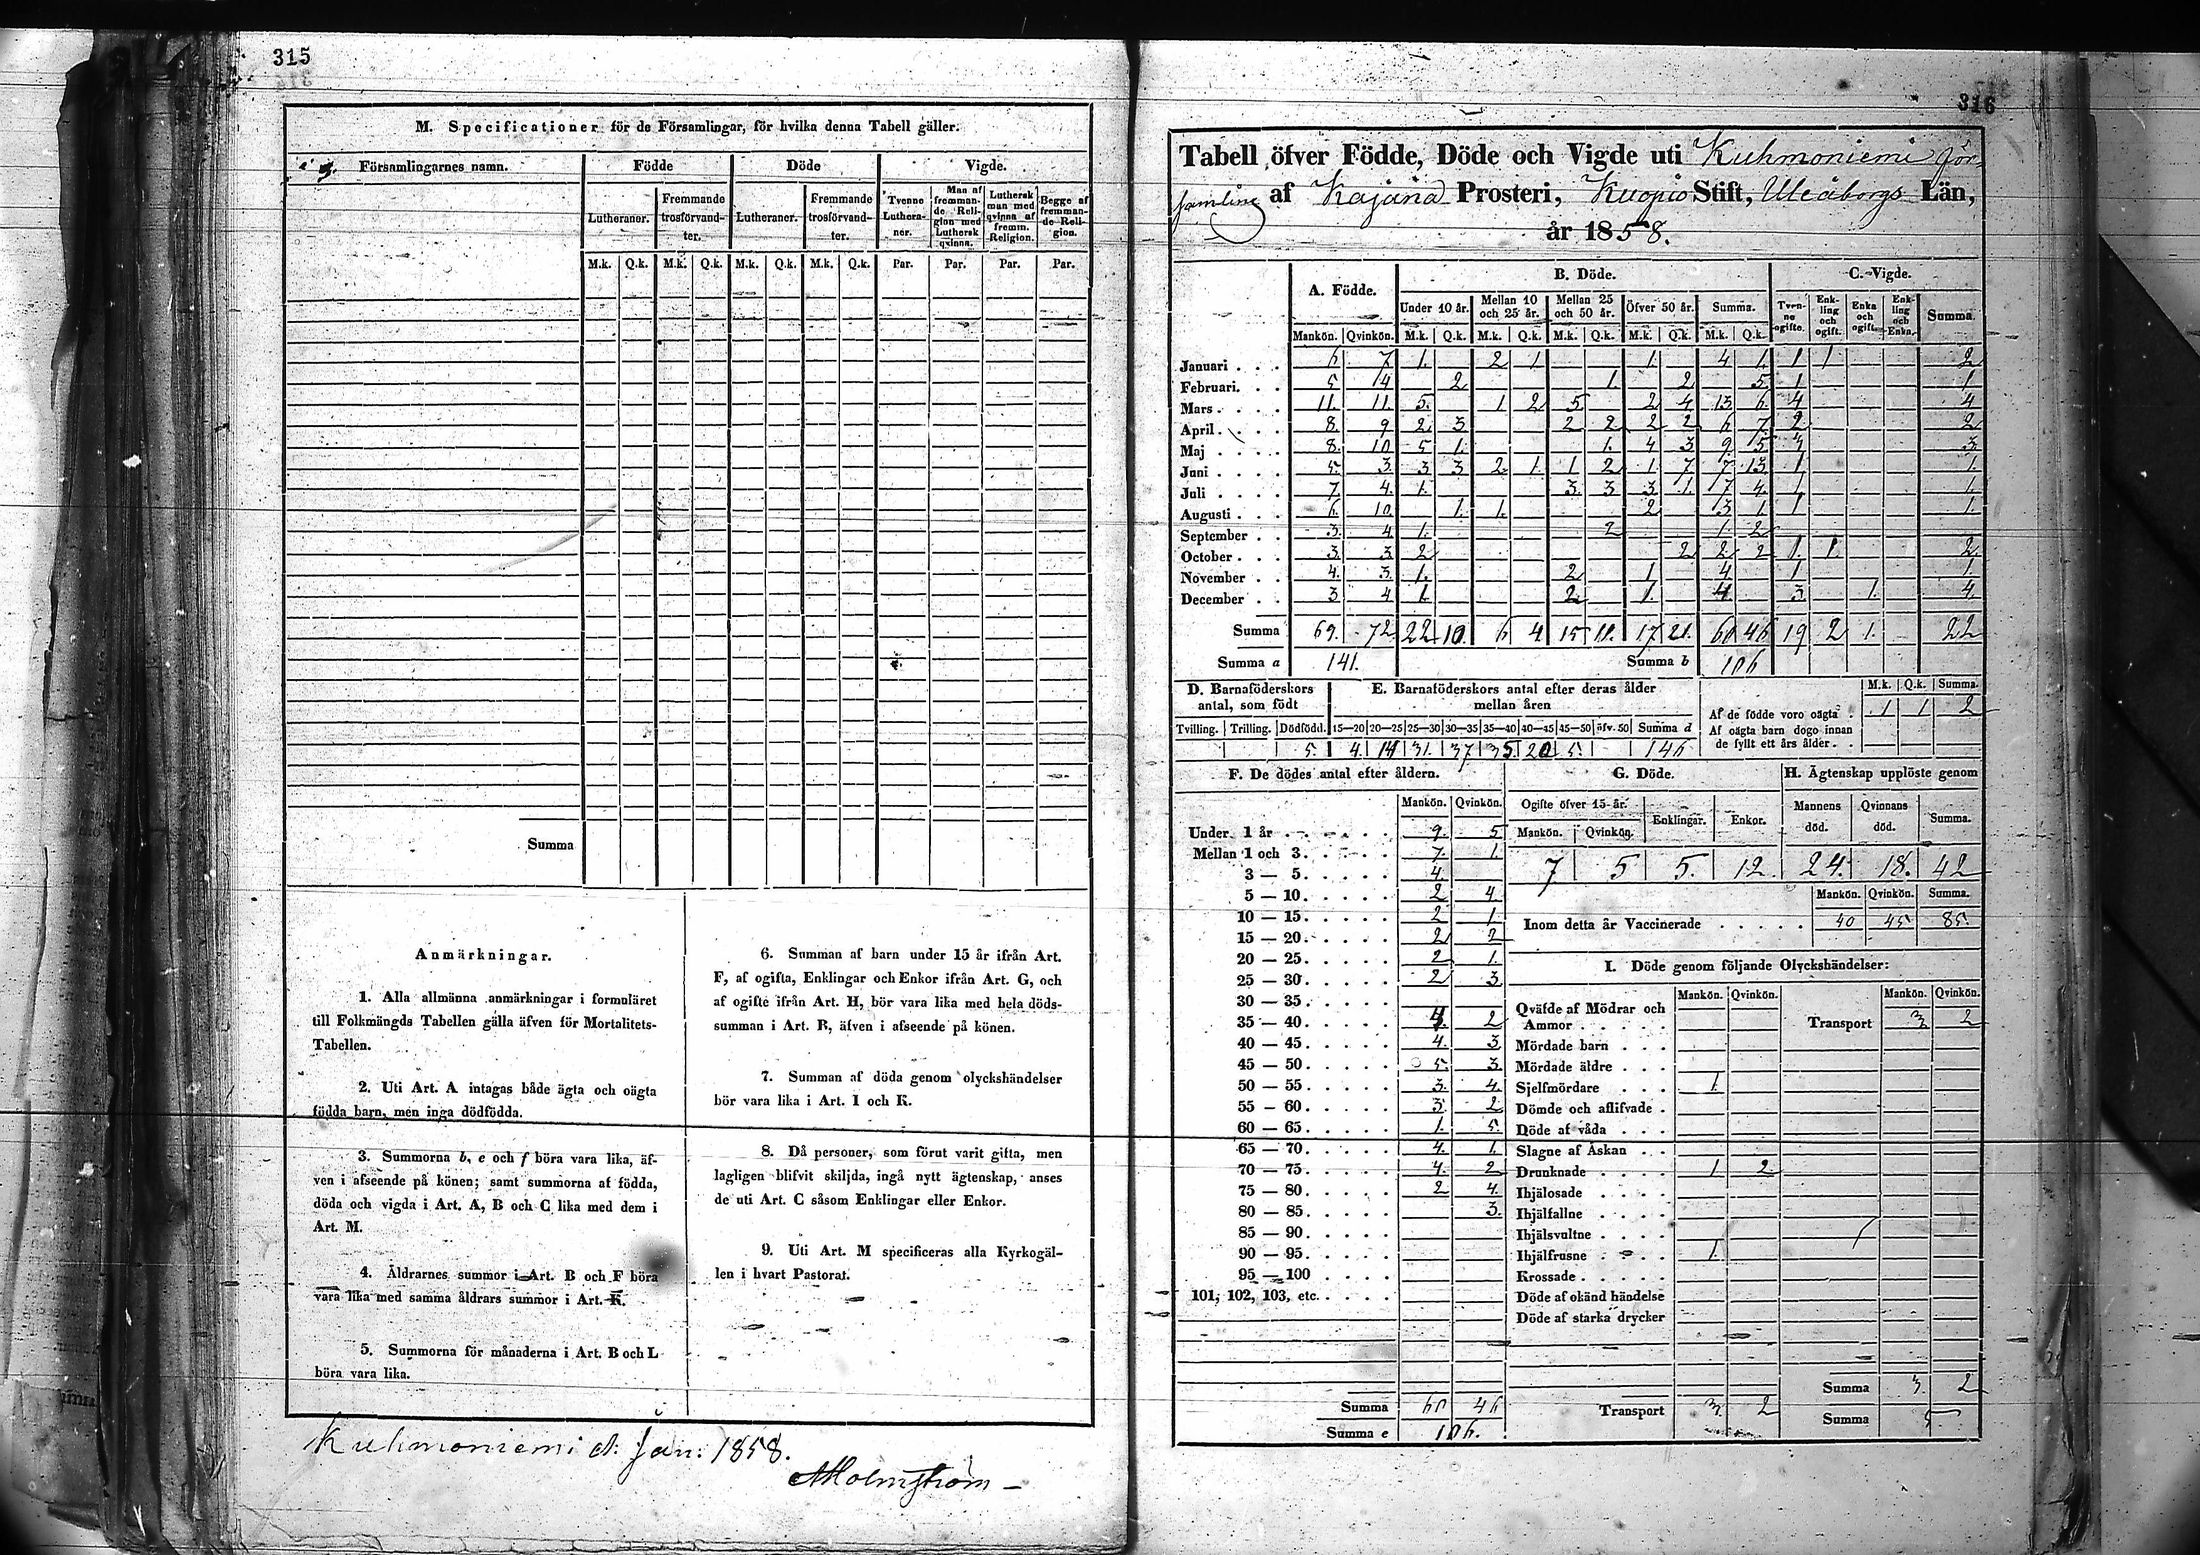 315
M. Specificationer för de Församlingar, för hvilka denna Tabell gäller.
Församlingarnes namn. | Födde | Döde | Vigde.
Lutheraner. | Fremmande trosförvandter. | Lutheraner. | Fremmande trosförvandter. | Tvenne Lutheraner. | Man af fremmande Religion med Luthersk qvinna. | Luthersk man med qvinna af fremm. Religion. | Begge af fremmande Religion.
M.k. | Q.k. | M.k. | Q.k. | M.k. | Q.k. | M.k. | Q.k. | Par. | Par. | Par. | Par.
Summa
Anmärkningar.
1. Alla allmänna anmärkningar i formuläret
till Folkmängds Tabellen gälla äfven för Mortalitets-
Tabellen.
2. Uti Art. A intagas både ägta och oägta
födda barn, men inga dödfödda.
3. Summorna b, e och f böra vara lika, äf-
ven i afseende på könen; samt summorna af födda,
döda och vigda i Art. A, B och C lika med dem i
Art. M.
4. Åldrarnes summor i Art. B och F böra
vara lika med samma åldrars summor i Art. K.
5. Summorna för månaderna i Art. B och L
böra vara lika.
6. Summan af barn under 15 år ifrån Art.
F, af ogifta, Enklingar och Enkor ifrån Art. G, och
af ogifte ifrån Art. H, bör vara lika med hela döds-
summan i Art. B, äfven i afseende på könen.
7. Summan af döda genom olyckshändelser
bör vara lika i Art. I och K.
8. Då personer, som förut varit gifta, men
lagligen blifvit skiljda, ingå nytt ägtenskap, anses
de uti Art. C såsom Enklingar eller Enkor.
9. Uti Art. M specificeras alla Kyrkogäl-
len i hvart Pastorat.
Kuhmoniemi d. Jan: 1858.
Holmström
316
Tabell öfver Födde, Döde och Vigde uti Kuhmoniemi för-
samling af Kajana Prosteri, Kuopio Stift, Uleåborgs Län,
år 1858.
A. Födde. | B. Döde. | C. Vigde.
Under 10 år. | Mellan 10 och 25 år. | Mellan 25 och 50 år. | Öfver 50 år. | Summa. | Tvenne ogifte. | Enkling och ogift. | Enka och ogift. | Enkling och Enka. | Summa.
Mankön. | Qvinkön. | M.k. | Q.k. | M.k. | Q.k. | M.k. | Q.k. | M.k. | Q.k. | M.k. | Q.k.
Januari 6 7 1. 2 1 1. 4 1. 1 1 2
Februari. 5 14 2 1. 2 5. 1 1.
Mars 11. 11. 5. 1 2 5. 2 4 13 6. 4 4
April. 8. 9 2. 3 2 2 2 2 6 7. 2 2
Maj 8. 10 5 1. 1. 4 3 9. 5 3 3.
Juni 5. 3 3 3 2 1. 1 2 1 7 7 13. 1 1.
Juli 7. 4. 1. 3. 3 3 1. 7 4. 1 1.
Augusti 6. 10. 1. 1. 2 3 1 1 1.
September 3. 4. 1. 2 1. 2
October 3. 3 2 2 2. 2 1. 1. 2.
November 4. 3. 1. 2 1 4. 1. 1.
December 3 4 1. 2 1. 4. 3. 1. 4.
Summa 69. 72 22 10. 6 4 15 11. 17 21. 60 46 19 2 1. 22
Summa a 141. Summa b 106
D. Barnaföderskors antal, som född | E. Barnaföderskors antal efter deras ålder mellan åren
Tvilling. | Trilling. | Dödfödd. | 15—20 | 20—25 | 25—30 | 30—35 | 35—40 | 40—45 | 45—50 | öfv. 50 | Summa d
5. 4. 14 31. 37 35. 20 5. 146
M.k. | Q.k. | Summa.
Af de födde voro oägta 1 1 2
Af oägta barn dogo innan
de fyllt ett års ålder
F. De dödes antal efter åldern.
Mankön. Qvinkön.
Under 1 år 9. 5
Mellan 1 och 3. 7. 1.
3 — 5. 4.
5 — 10. 2 4.
10 — 15. 2 1.
15 — 20. 2 2
20 — 25. 2 1.
25 — 30. 2 3.
30 — 35.
35 — 40. 4. 2
40 — 45. 4. 3
45 — 50. 5. 3
50 — 55. 3. 4.
55 — 60. 3. 2
60 — 65. 1. 5.
65 — 70. 4. 1.
70 — 75. 4. 2
75 — 80. 2 4.
80 — 85. 3.
85 — 90.
90 — 95.
95 — 100
101, 102, 103, etc.
Summa 60 46
Summa e 106.
G. Döde.
Ogifte öfver 15 år. | Enklingar. | Enkor.
Mankön. | Qvinkön.
7 5 5. 12.
H. Ägtenskap upplöste genom
Mannens död. | Qvinnans död. | Summa.
24. 18. 42
Mankön. | Qvinkön. | Summa.
Inom detta år Vaccinerade 40 45 85.
I. Döde genom följande Olyckshändelser:
Mankön. | Qvinkön. | Mankön. | Qvinkön.
Qväfde af Mödrar och
Ammor
Transport 3 2
Mördade barn
Mördade äldre
Sjelfmördare 1.
Dömde och aflifvade
Döde af våda
Slagne af Åskan
Drunknade 1 2.
Ihjälosade
Ihjälfallne
Ihjälsvultne
Ihjälfrusne 1.
Krossade
Döde af okänd händelse
Döde af starka drycker
Summa 3. 2
Transport 3. 2
Summa 5